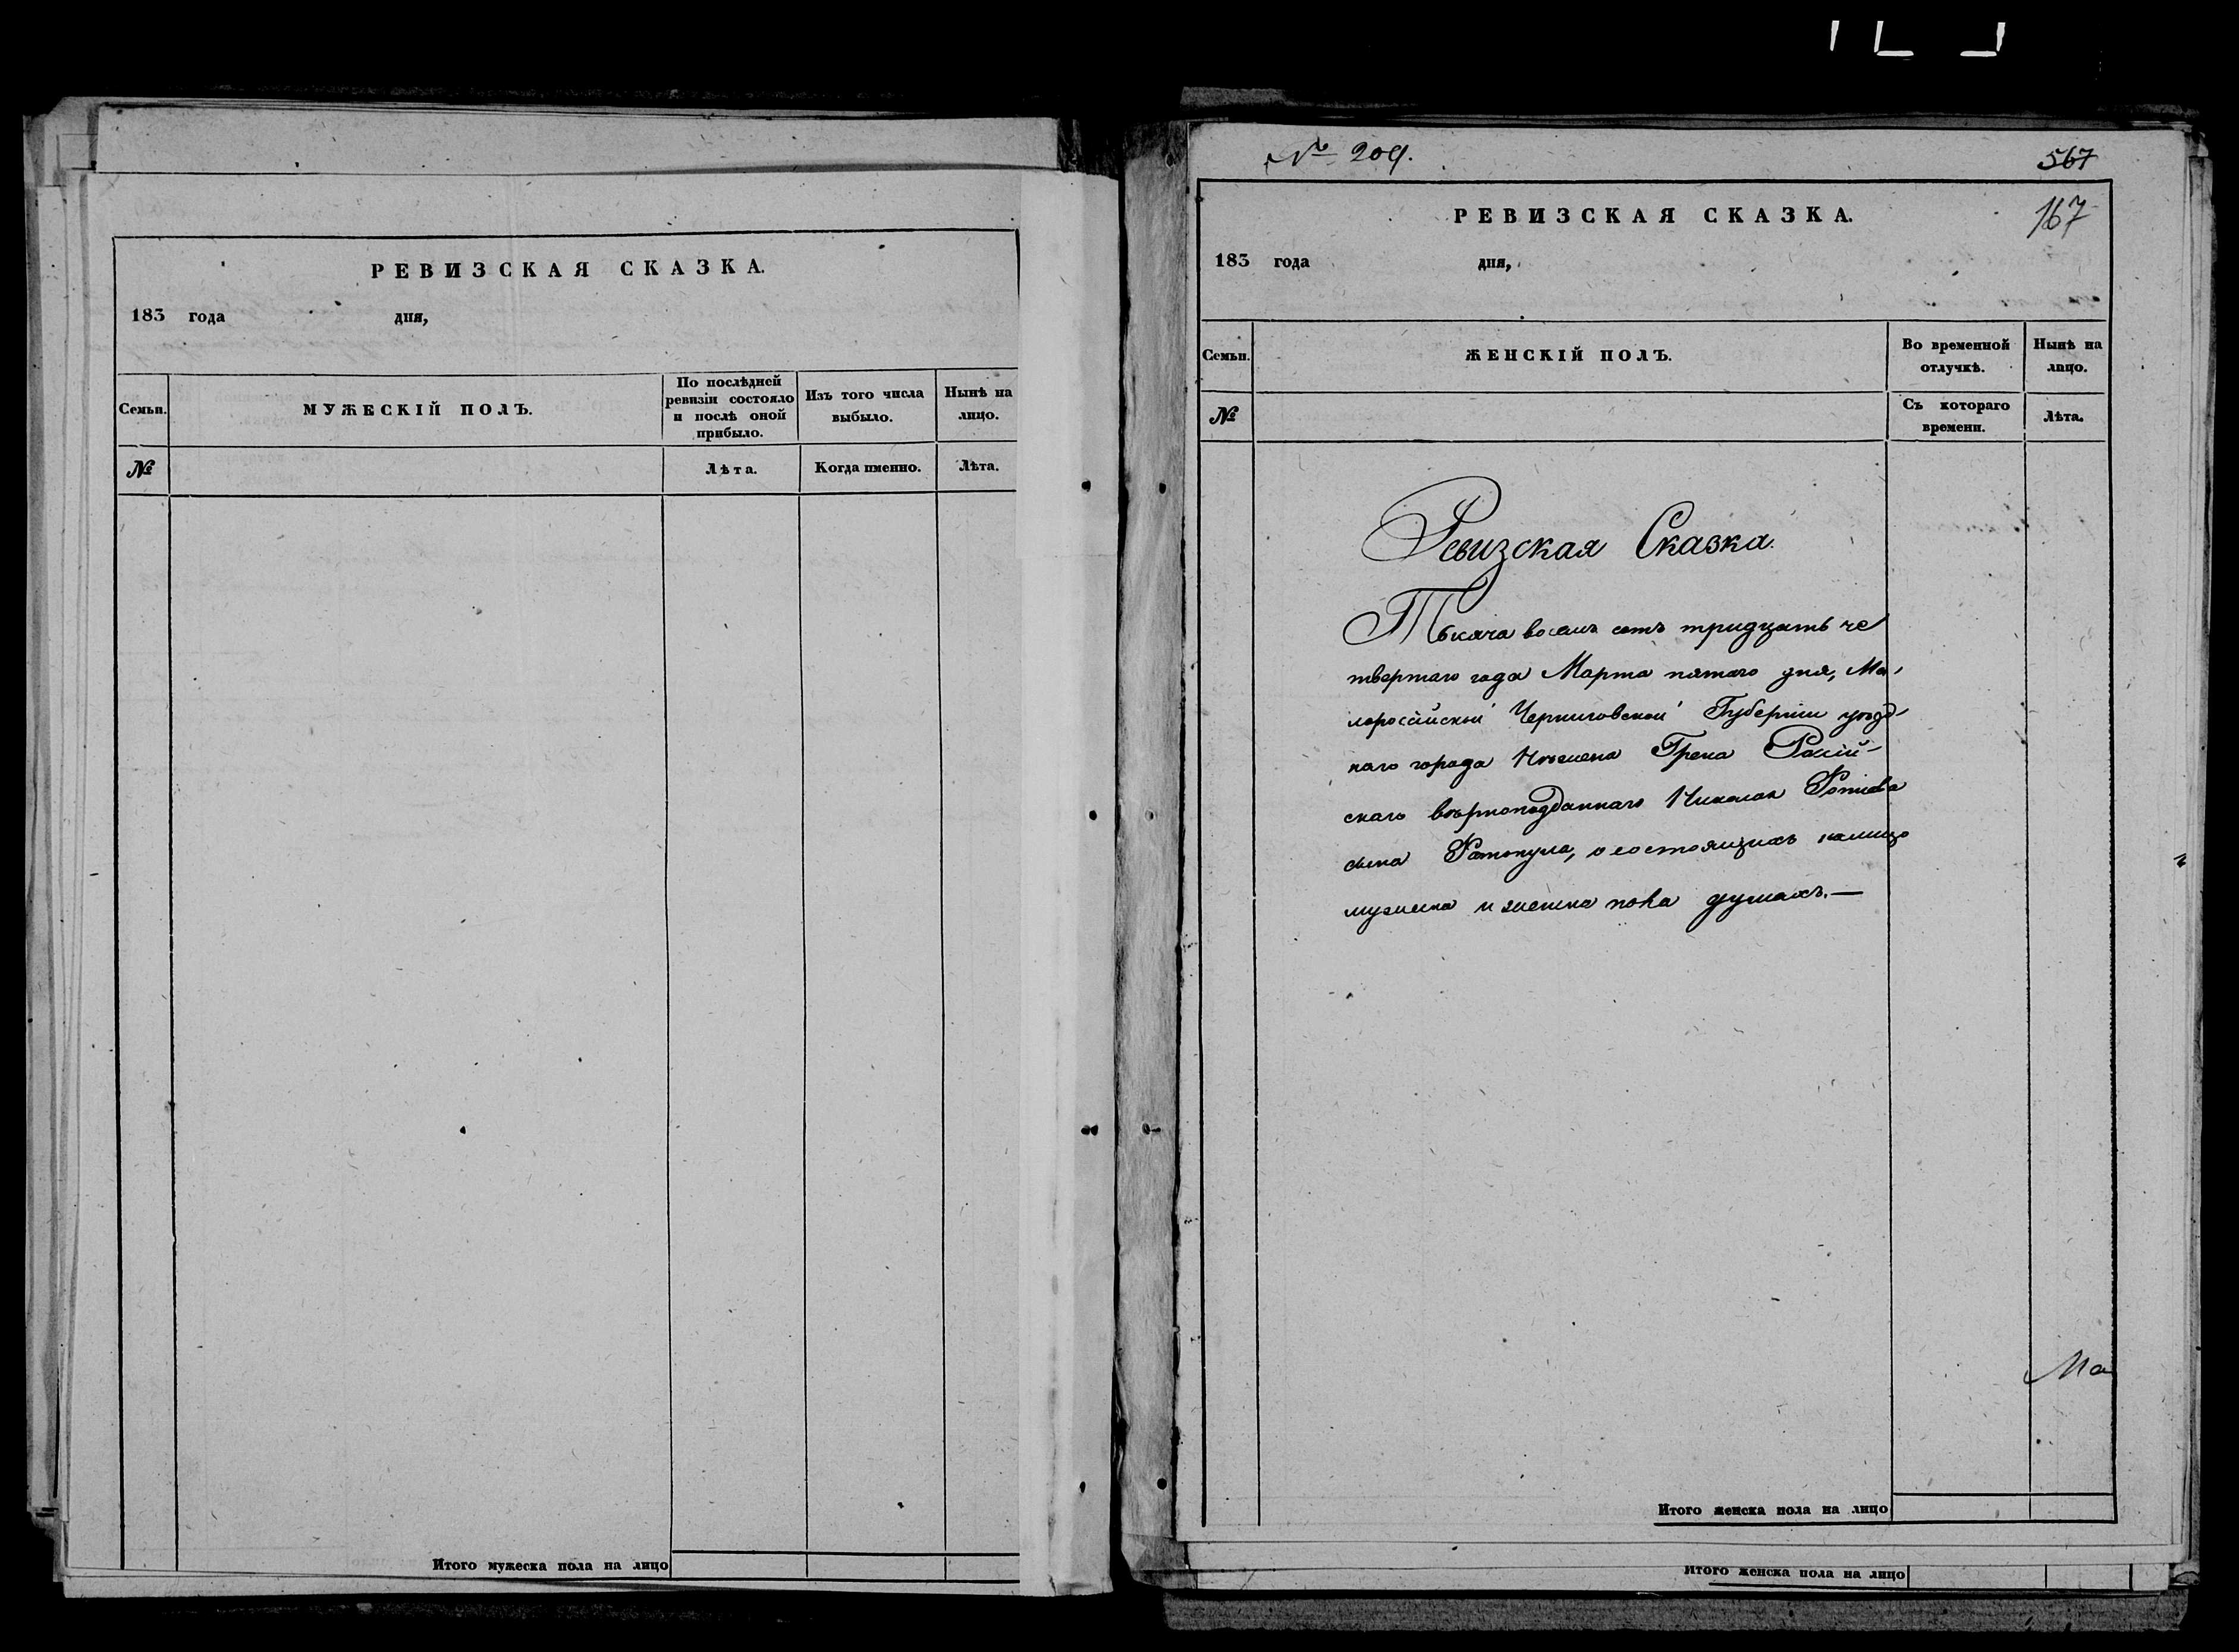 РЕВИЗСКАЯ СКАЗКА.
183 года дня,
Семьи.
МУЖЕСКІЙ ПОЛЪ.
По послѣдней ревизіи состояло и послѣ оной прибыло.
Изъ того числа выбыло.
Нынѣ на лицо.
№
Лѣта.
Когда именно.
Лѣта.
Итого мужеска пола на лицо
№ 209.
567
167
РЕВИЗСКАЯ СКАЗКА.
183 года дня,
Семьи.
ЖЕНСКІЙ ПОЛЪ.
Во временной отлучкѣ.
Нынѣ на лицо.
№
Съ котораго времени.
Лѣта.
Ревизская Сказка.
Тысяча восемь сотъ тридцать че
твертаго года Марта пятаго дня, Ма,
лоросійской Черниговской Губерніи уѣзд-
наго города Нѣжена Грека Росій-
скаго вѣрноподданнаго Николая
сына о состоящихъ налицо
мужеска и женска пола душахъ.—
Ма
Итого женска пола на лицо
Итого женска пола на лицо